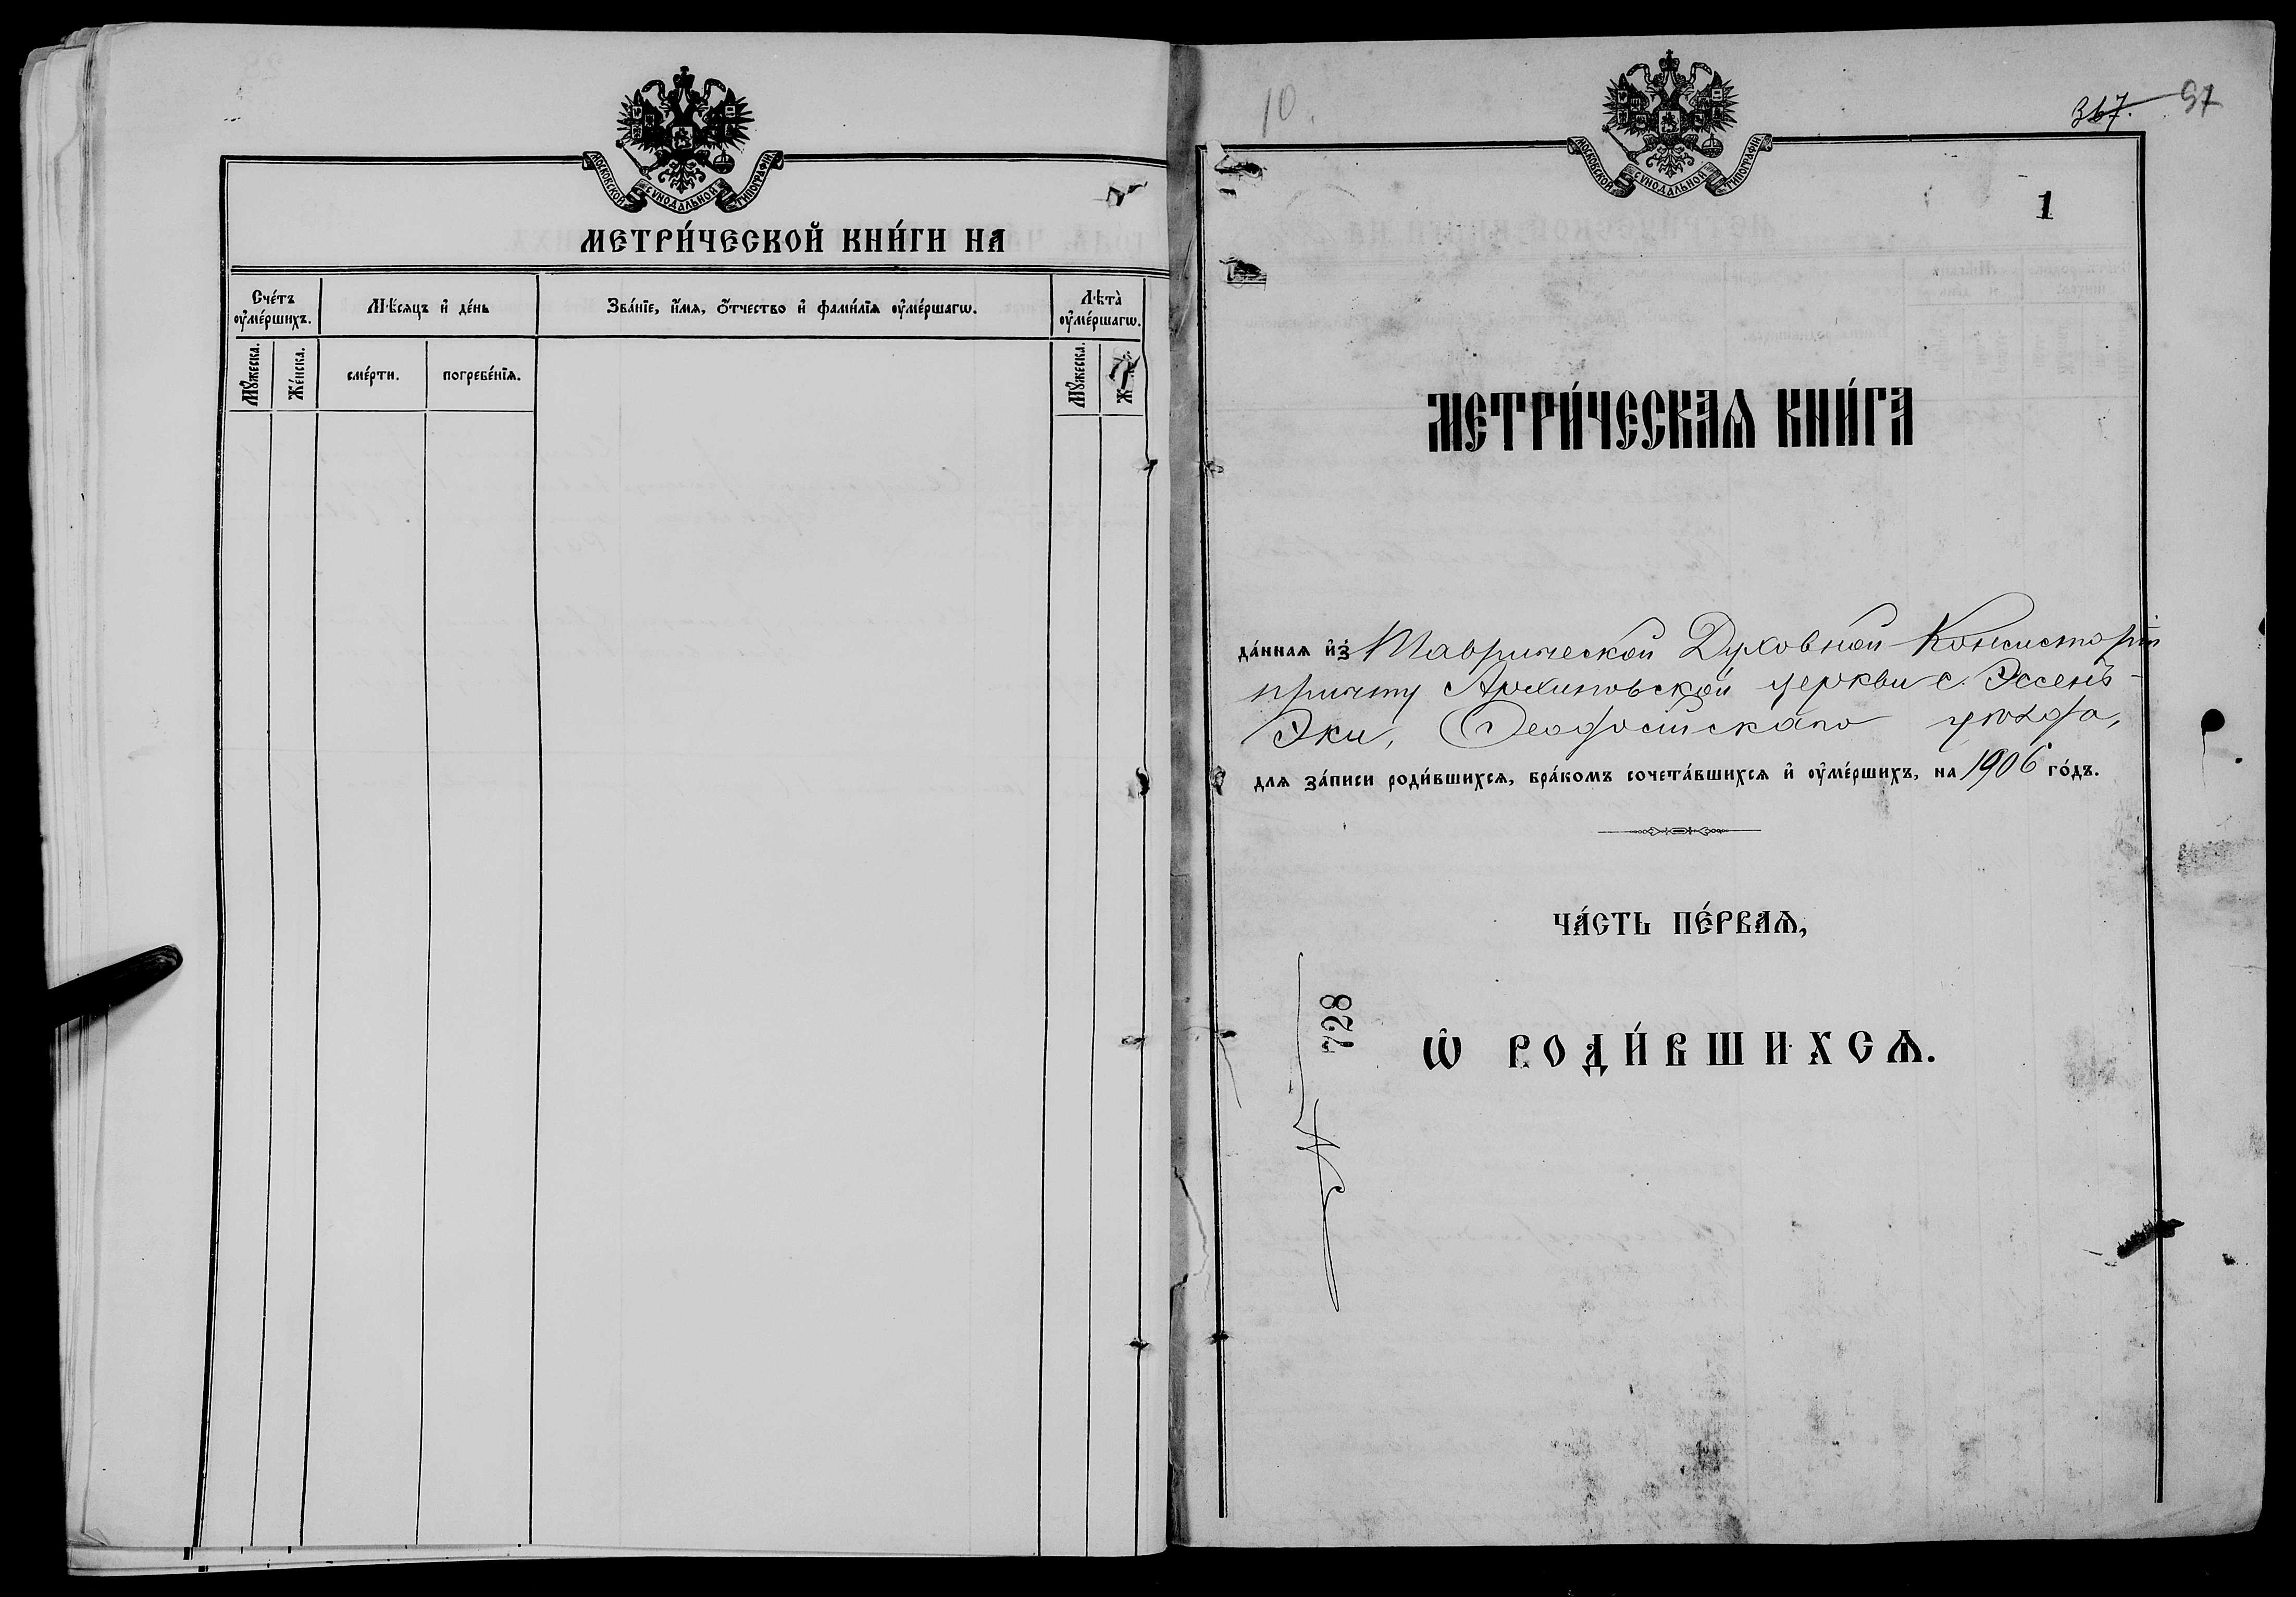 МОСКОВСКОЙ СѴНОДАЛЬНОЙ ТИПОГРАФІИ
МЕТРИ́ЧЕСКОЙ КНИ́ГИ НА
Сче́тъ ᲂу҆ме́ршихъ.
Мѣ́сяцъ и҆ де́нь
Зва́нїе, и҆́мя, ѻ҆́тчество и҆ фами́лїя ᲂу҆ме́ршагѡ.
Лѣта̀ ᲂу҆ме́ршагѡ.
Мꙋжеска.
Же́нска.
сме́рти.
погребе́нїѧ.
Мꙋжеска.
10.
367. 91
МОСКОВСКОЙ СѴНОДАЛЬНОЙ ТИПОГРАФІИ
1
МЕТРИ́ЧЕСКАѦ КНИ́ГА
да́ннаѧ и҆з̾ Таврической Духовной Консисторіи
причту Архиповской церкви с. Эссенъ-
Эки, Ѳеодосійскаго уѣзда,
длѧ за́писи роди́вшихсѧ, бра́комъ сочета́вшихсѧ и҆ ᲂу҆ме́ршихъ, на 1906 го́дъ.
ЧА́СТЬ ПЕ́РВАѦ,
Ѽ РОДИ́ВШИХСѦ.
728